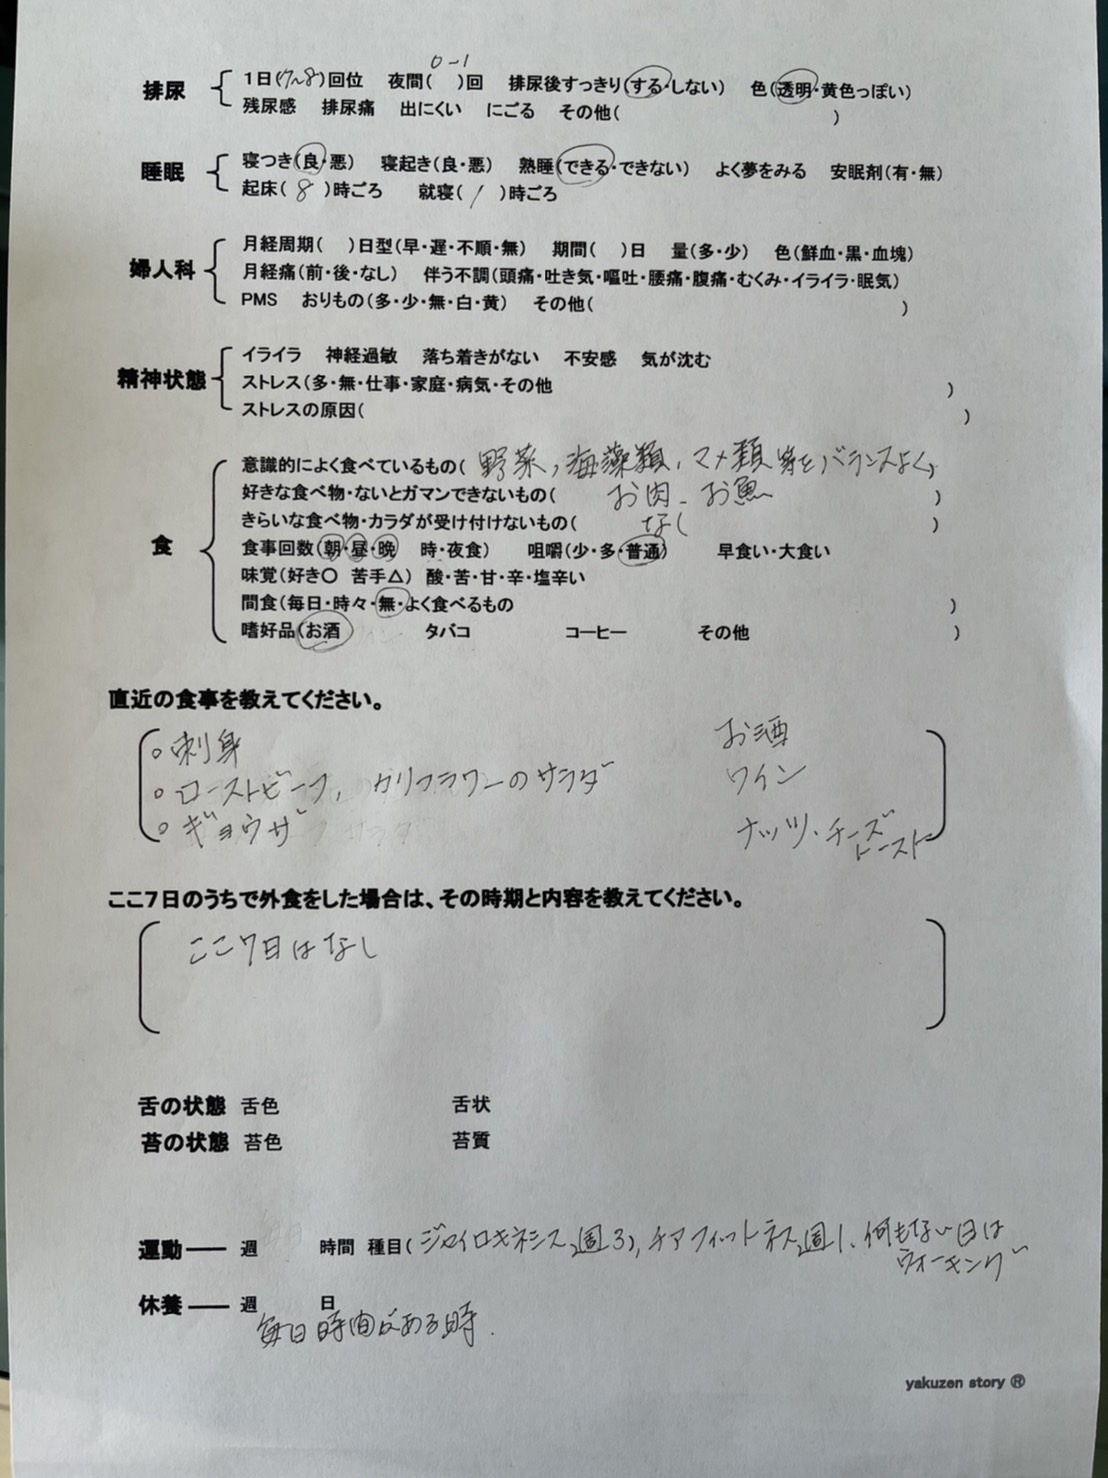 排尿 1日(7~8)回位 夜間(0-1)回 排尿後すっきり(する・しない) 色(透明・黄色っぽい)
残尿感 排尿痛 出にくい にごる その他( )
睡眠 寝つき(良・悪) 寝起き(良・悪) 熟睡(できる・できない) よく夢をみる 安眠剤(有・無)
起床(8)時ごろ 就寝(1)時ごろ
婦人科 月経周期( )日型(早・遅・不順・無) 期間( )日 量(多・少) 色(鮮血・黒・血塊)
月経痛(前・後・なし) 伴う不調(頭痛・吐き気・嘔吐・腰痛・腹痛・むくみ・イライラ・眠気)
PMS おりもの(多・少・無・白・黄) その他( )
精神状態 イライラ 神経過敏 落ち着きがない 不安感 気が沈む
ストレス(多・無・仕事・家庭・病気・その他 )
ストレスの原因( )
食 意識的によく食べているもの(野菜,海藻類,マメ類等をバランスよく)
好きな食べ物・ないとガマンできないもの(お肉、お魚)
きらいな食べ物・カラダが受け付けないもの(なし)
食事回数(朝・昼・晩 時・夜食) 咀嚼(少・多・普通) 早食い・大食い
味覚(好き〇 苦手△) 酸・苦・甘・辛・塩辛い
間食(毎日・時々・無・よく食べるもの )
嗜好品(お酒 タバコ コーヒー その他 )
直近の食事を教えてください。
。刺身 お酒
。ローストビーフ, カリフラワーのサラダ ワイン
。ギョウザ ナッツ・チーズ
トースト
ここ7日のうちで外食をした場合は、その時期と内容を教えてください。
ここ7日はなし
舌の状態 舌色 舌状
苔の状態 苔色 苔質
運動 ── 週 時間 種目(ジャイロキネシス週3), チアフィットネス週1、何もない日は
ウォーキング
休養 ── 週 日
毎日時間がある時.
yakuzen story ®